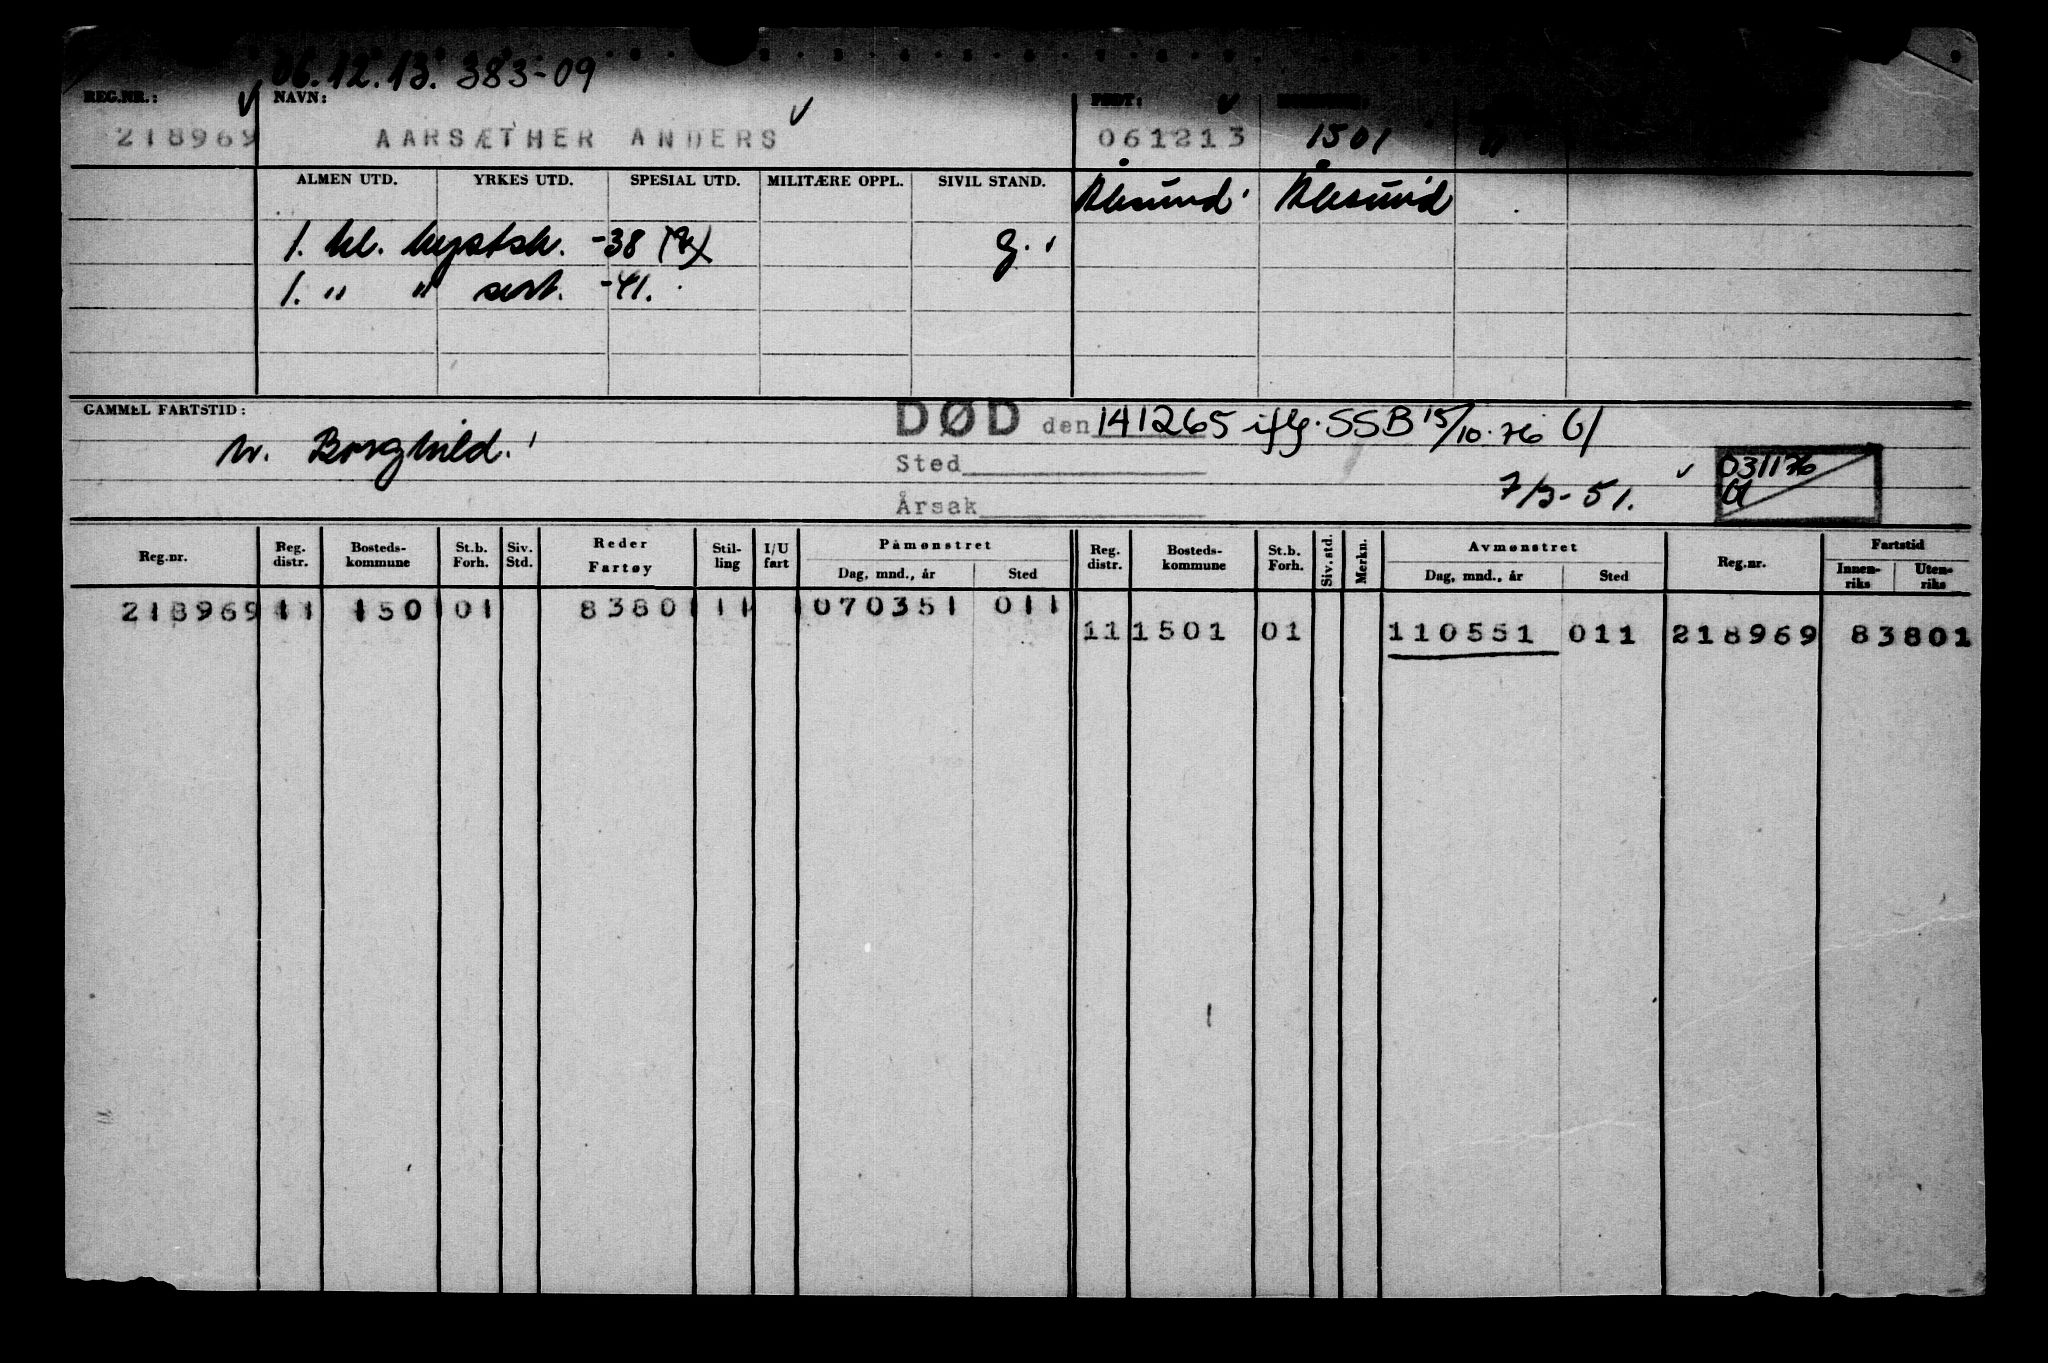 06.12.13. 383-09
REG.NR.: NAVN: FØDT:
218969 AARSÆTHER ANDERS 061213 1501 "
ALMEN UTD. YRKES UTD. SPESIAL UTD. MILITÆRE OPPL. SIVIL STAND. Ålesund Ålesund
1. kl. kystsk. -38 g.
1. " " sert. -41.
GAMMEL FARTSTID: DØD den 141265 iflg. SSB 15/10-76
w. Borghild. Sted 031176
7/3-51.
Årsak
Reg.nr. Reg. distr. Bosteds-kommune St.b. Forh. Siv. Std. Reder Fartøy Stil-ling I/U fart Påmønstret Dag, mnd., år Sted Reg. distr. Bosteds-kommune St.b. Forh. Siv. std. Merkn. Avmønstret Dag, mnd., år Sted Reg.nr. Fartstid Innen-riks Uten-riks
218969 11 150 01 8380 11 070351 011
11 1501 01 110551 011 218969 83801